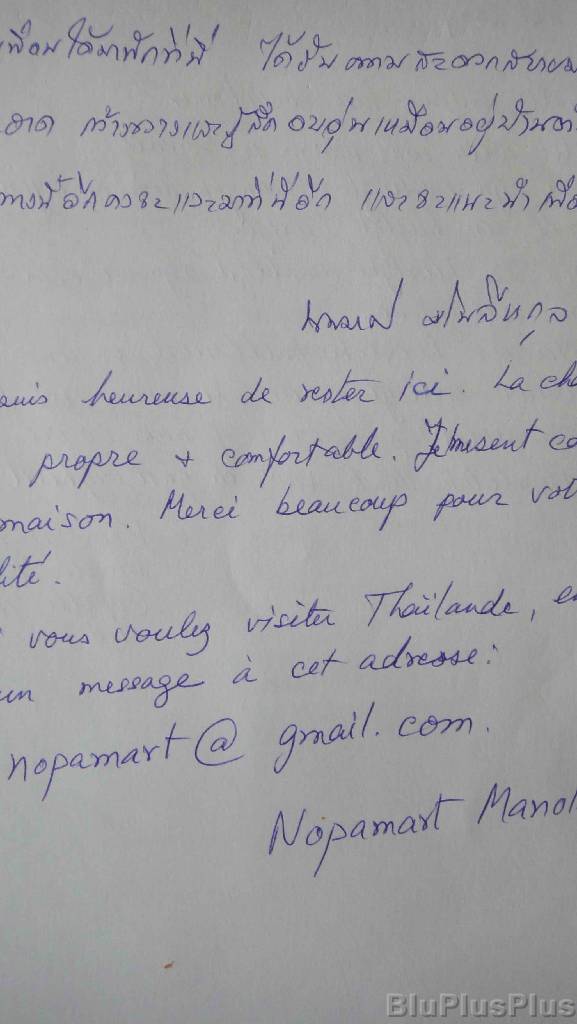 เพื่อนได้มาพักที่นี่ ได้รับความสะดวกสบาย
อาด กว้างขวางและรู้สึกอบอุ่นเหมือนอยู่บ้าน
ทางนี้อีกคงจะแวะมาที่นี่อีก และจะแนะนำเพื่อ
มโนสีหกุล
suis heureuse de rester ici. La cha
propre + comfortable. Je me sent co
maison. Merci beaucoup pour vot
lité.
i vous voulez visiter Thaïlande, en
un message à cet adresse:
nopamart@gmail.com.
Nopamart Manol
BluPlusPlus